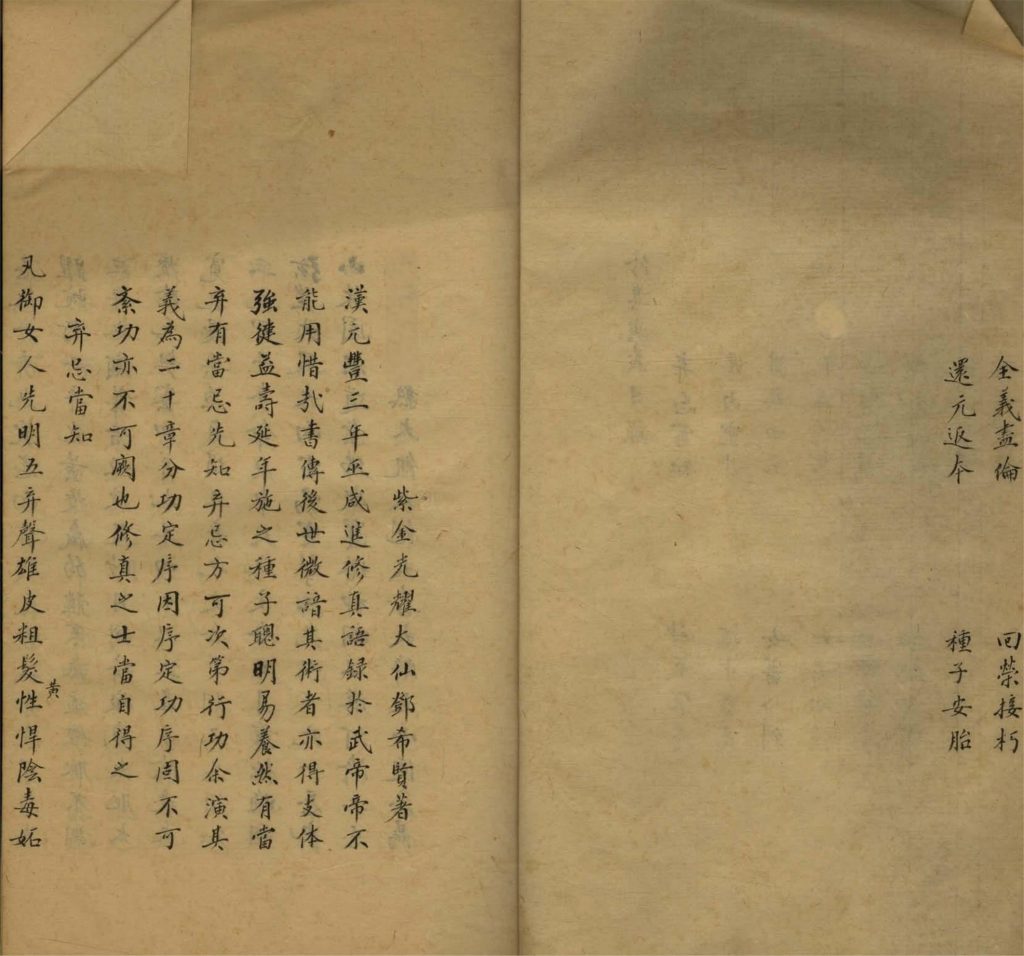 全義盡倫 回榮接朽
還元返本 種子安胎
紫金光耀大仙鄧希賢著
漢元豐三年巫咸進修真語録於武帝帝不
能用惜哉書傳後世微諳其術者亦得支体
強健益壽延年施之種子聰明易養然有當
弃有當忌先知弃忌方可次第行功余演其
義為二十章分功定序因序定功序固不可
紊功亦不可闕也修真之士當自得之
弃忌當知
凡御女人先明五弃聲雄皮粗髮黃性悍陰毒妬